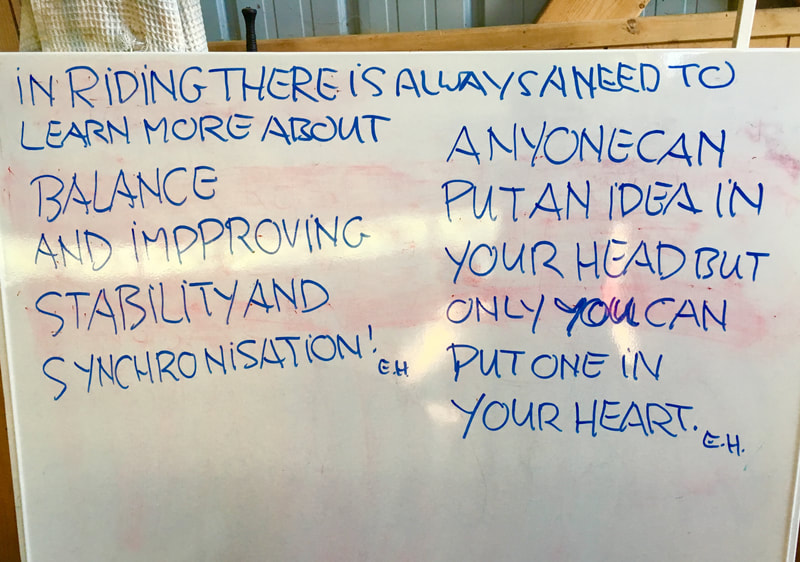 IN RIDING THERE IS ALWAYS A NEED TO
LEARN MORE ABOUT
BALANCE
AND IMPPROVING
STABILITY AND
SYNCHRONISATION!
E.H
ANYONE CAN
PUT AN IDEA IN
YOUR HEAD BUT
ONLY YOU CAN
PUT ONE IN
YOUR HEART.
E.H.